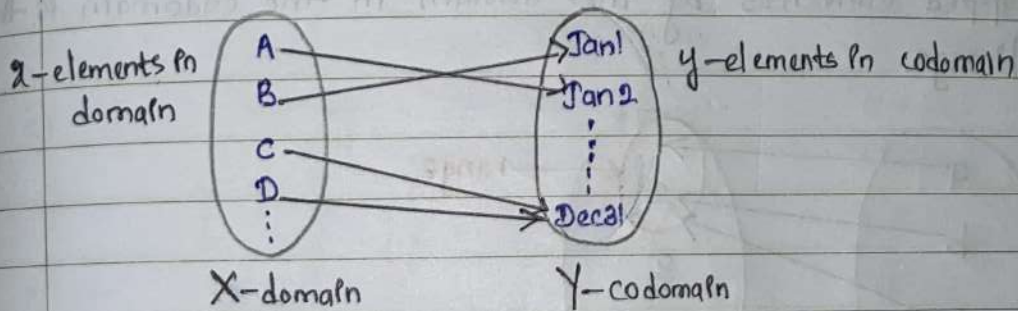 x-elements in
domain
A
B
C
D
Jan1
Jan2
Dec31
y-elements in codomain
X-domain
Y-codomain